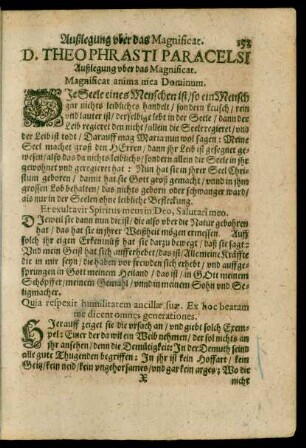 Außlegung vber das Magnificat.
D. THEOPHRASTI PARACELSI
Außlegung vber das Magnificat.
Magnificat anima mea Dominum.
DIe Seele eines Menschen ist / so ein Mensch
gar nichts leiblichs handelt / sondern keusch / rein
vnd lauter ist / derselbige lebt in der Seele / dann der
Leib regieret den nicht / allein die Seele regieret / vnd
der Leib ist todt / Darauff mag Maria nun wol sagen: Meine
Seel machet groß den HErrn / dann jhr Leib ist gesegnet ge-
wesen / also das da nichts leiblichs / sondern allein die Seele in jhr
gewohnet vnd geregieret hat: Nun hat sie in jhrer Seel Chri-
stum geboren / damit hat sie Gott groß gemacht / vnnd in jhm
grossen Lob behalten / das nichts geborn oder schwanger ward /
als nur in der Seelen ohne leibliche Befleckung.
Et exultavit Spiritus meus in Deo, Salutari meo.
DIeweil sie dann nun die ist / die also vber die Natur geboren
hat / das hat sie in jhrer Weißheit mögen ermessen. Auff
solch jhr eigen Erkenntnuß hat sie darzu bewegt / daß sie sagt:
Vnd mein Geist hat sich aufferhebet / das ist / Allmeine Kräffte
die in mir seyn / die haben in frewden sich erhebt / vnd auffge-
sprungen in Gott meinem Heiland / das ist / in GOtt meinem
Schöpffer / meinem Gemahl / vnnd in meinem Sohn vnd Se-
ligmacher.
Quia respexit humilitatem ancillæ suæ. Ex hoc beatam
me dicent omnes generationes.
HIerauff zeiget sie die vrsach an / vnd giebt solch Exem-
pel: Einer der da wil ein Weib nehmen / der sol nichts an
jhr ansehen / denn die Demütigkeit: In der Demuth seind
alle gute Thugenden begriffen: In jhr ist kein Hoffart / kein
Geitz / kein neid / kein vngehorsamer / vnd gar kein arges; Wo die
X
nicht